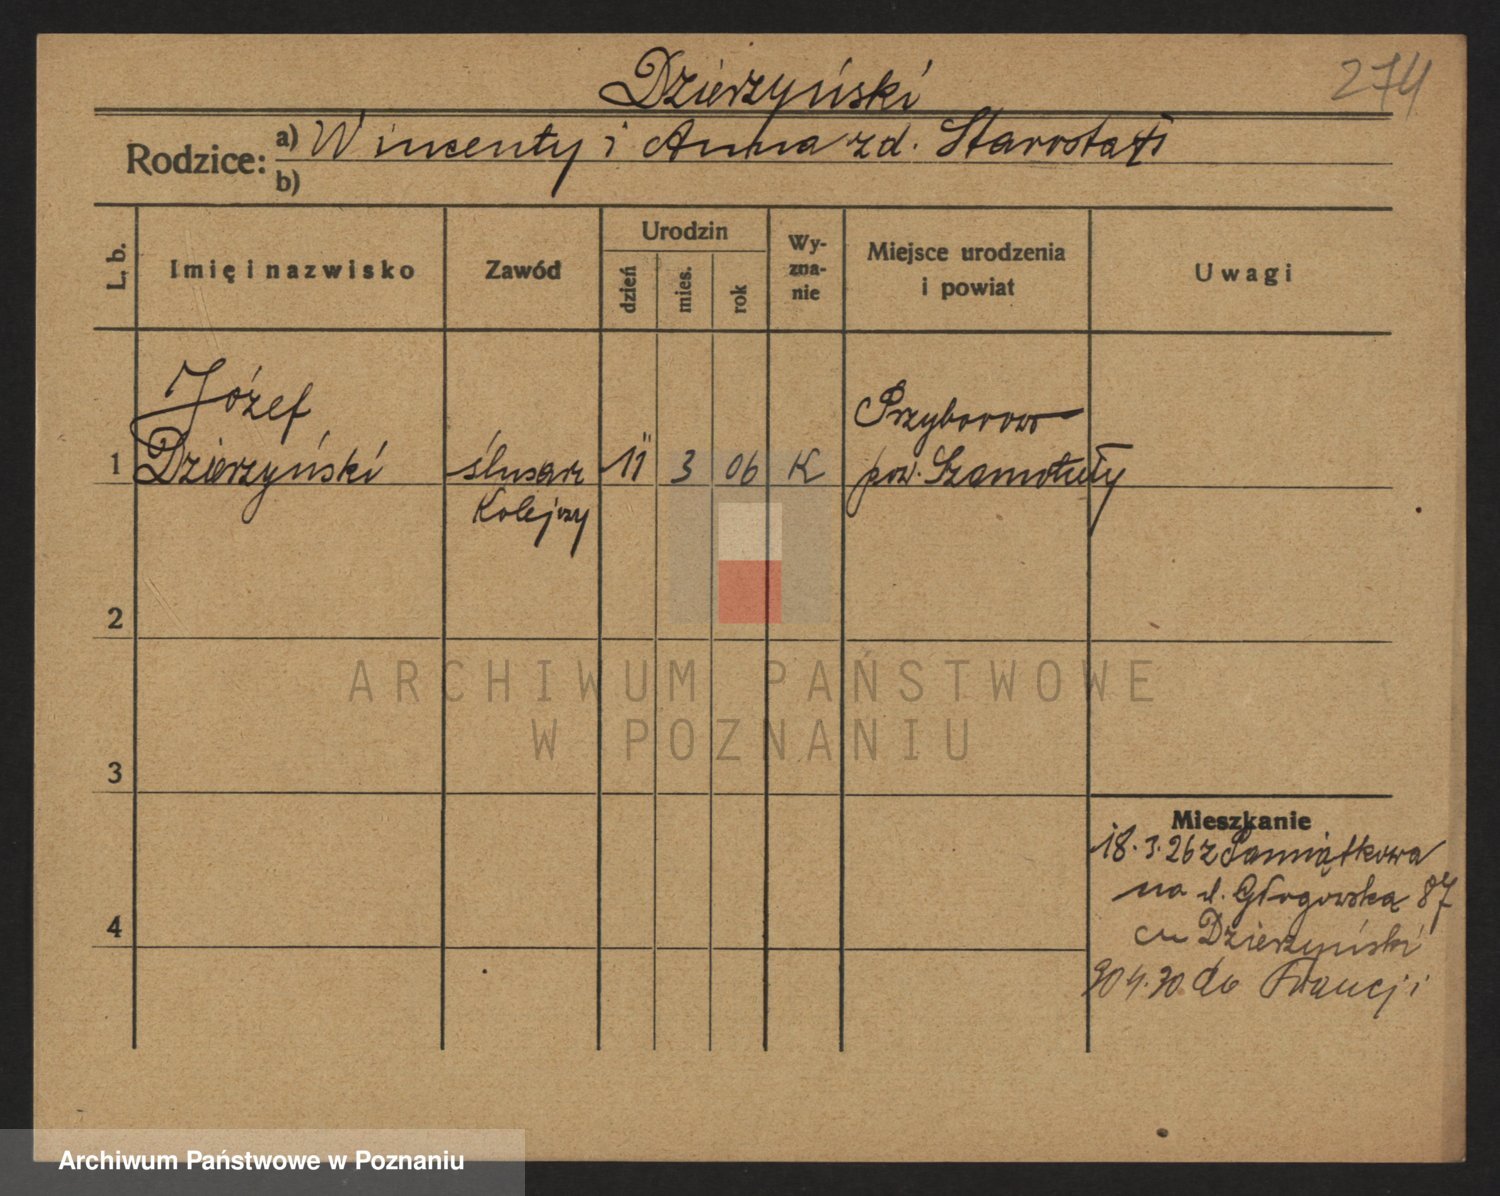 Dzierzyński
274
Rodzice: a) Wincenty i Anna zd. Starosta
b)
L. b.
Imię i nazwisko
Zawód
Urodzin
dzień
mies.
rok
Wy-
zna-
nie
Miejsce urodzenia
i powiat
Uwagi
1
Józef
Dzierzyński
ślusarz
Kolejowy
11
3
06
K
Przyborowo
pow. Szamotuły
2
3
4
Mieszkanie
18.3.26 z Pamiątkowa
na ul. Głogowską 87
Dzierzyński
30.4.30 do Francji
ARCHIWUM PAŃSTWOWE
W POZNANIU
Archiwum Państwowe w Poznaniu